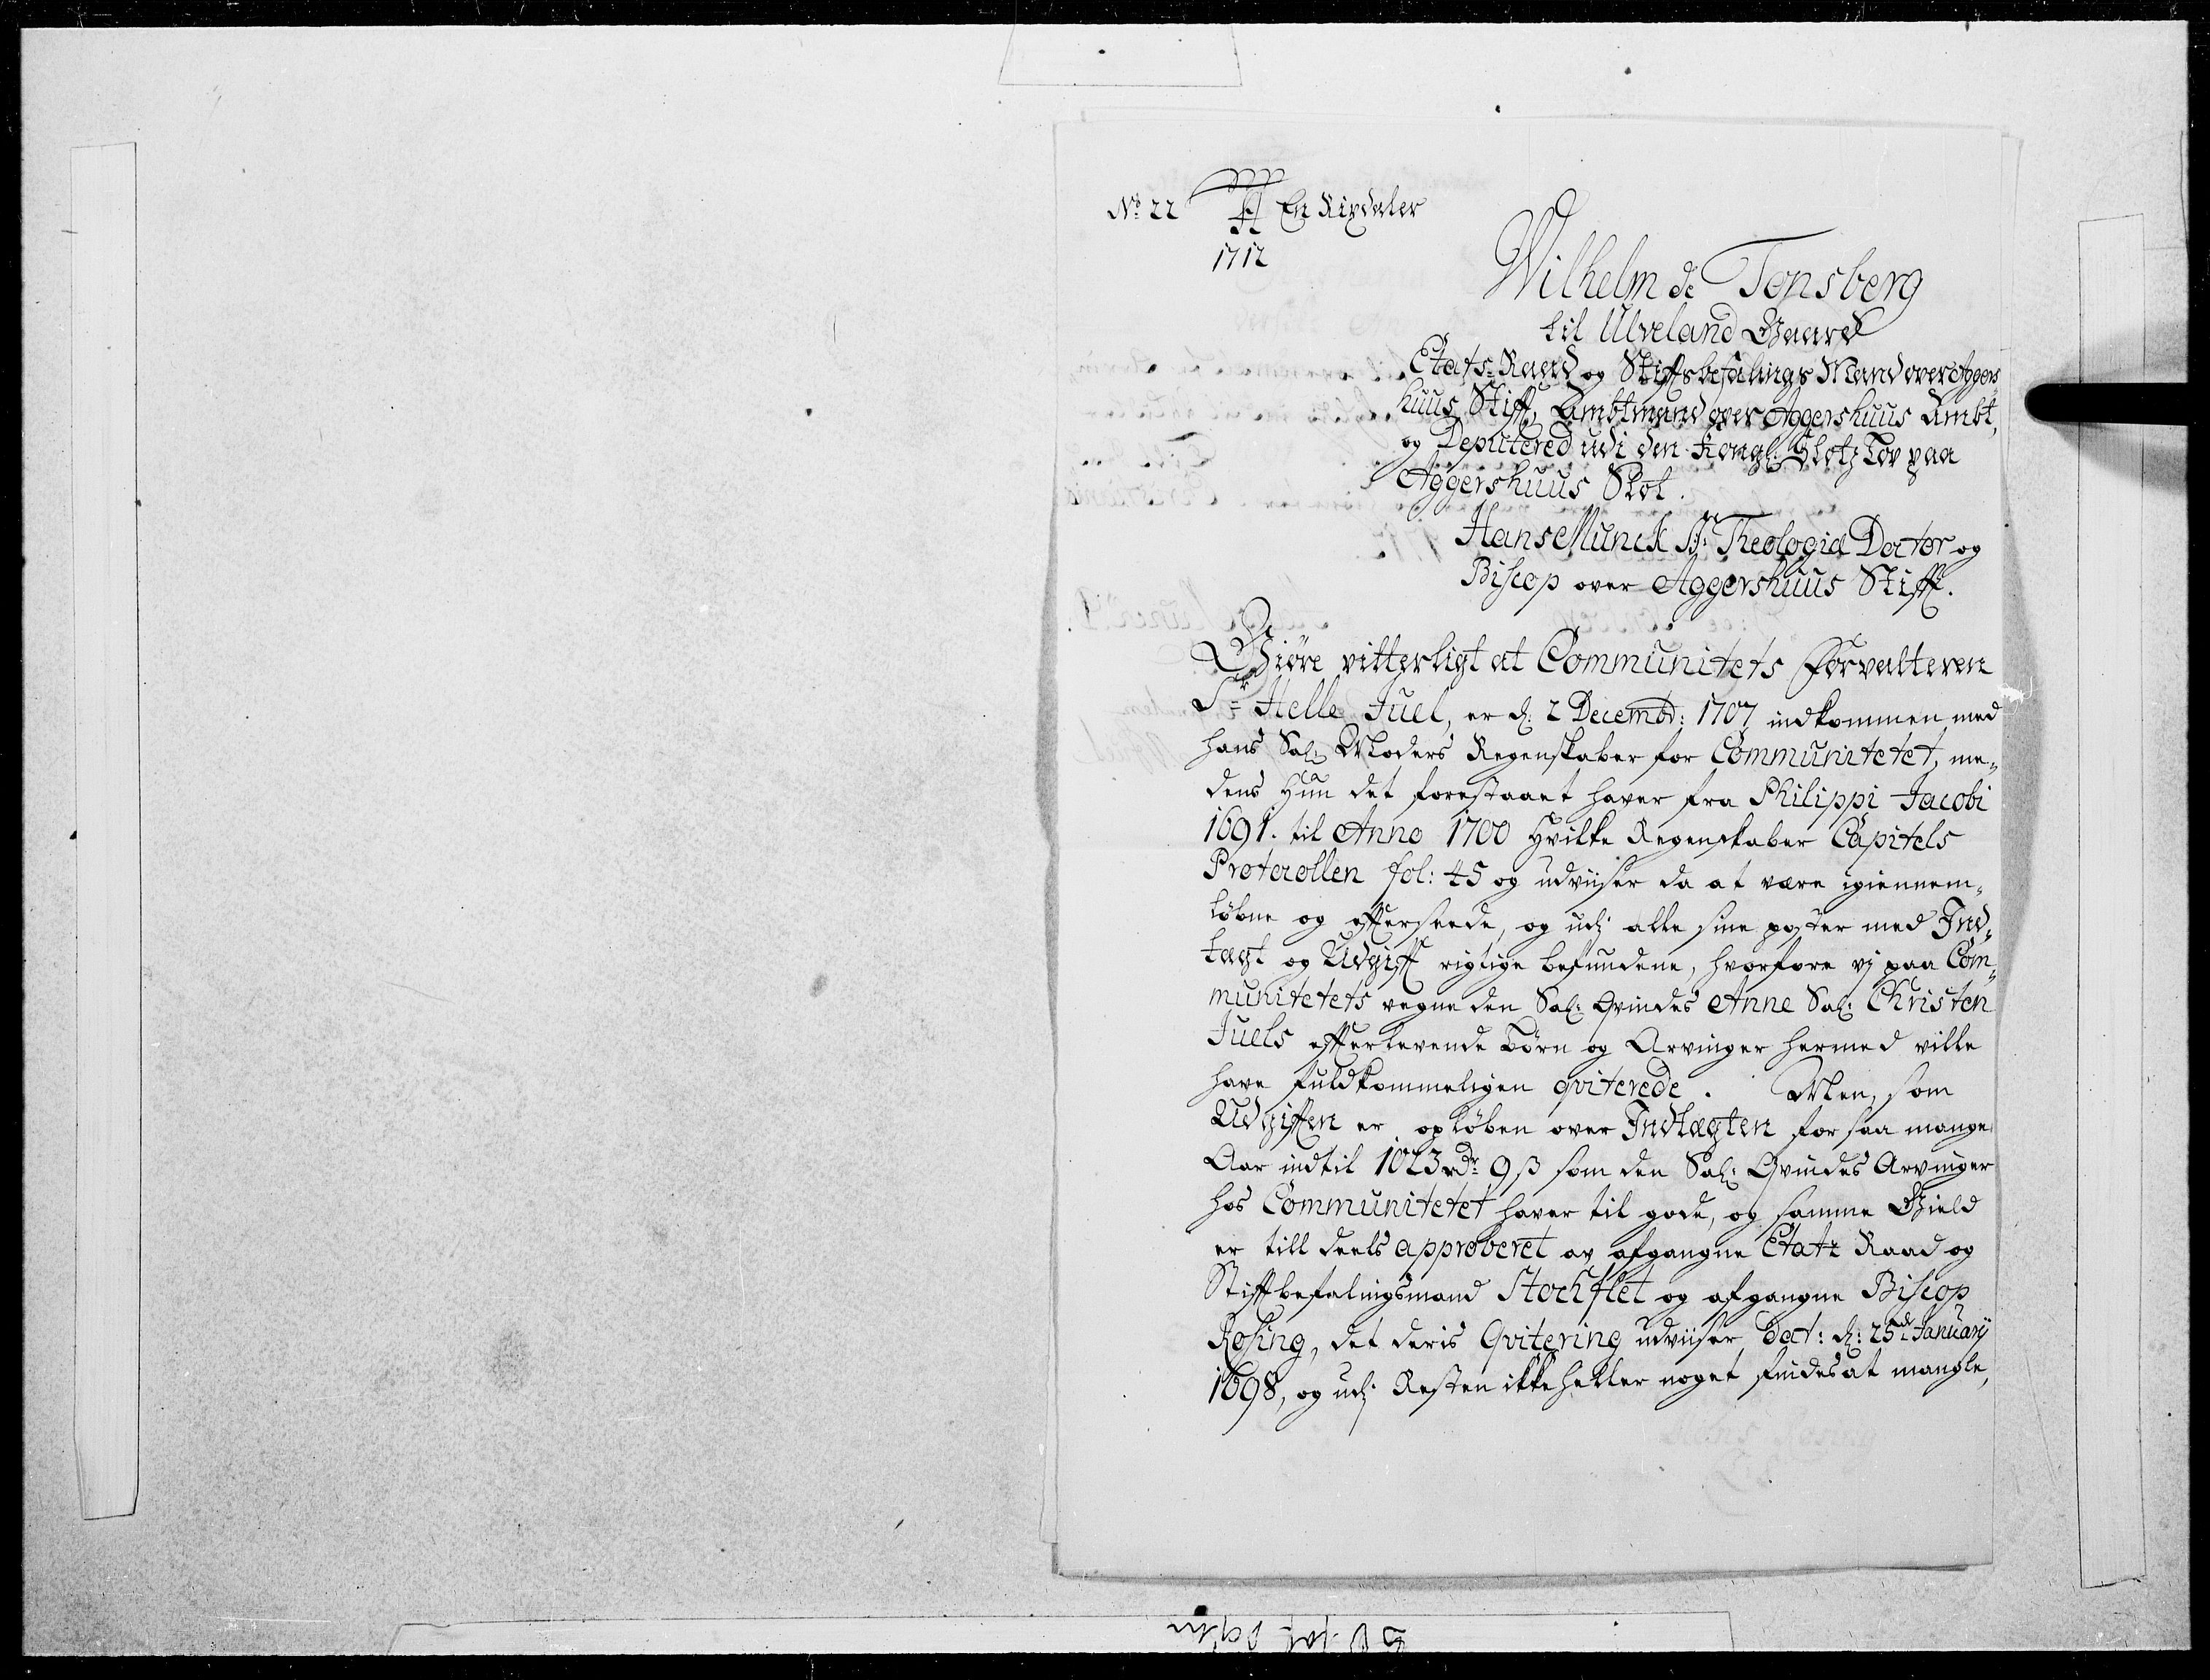 No: 22 En Rixdaler
1712
Wilhelm de Tonsberg
til Ulveland Gaard
Etats-Raad og Stiffts befalings Mand over Aggers
huus Stifft, Ambtmand over Aggershuus Ambt,
og Deputered udi den Kongl: Slotz Lov paa
Aggershuus Slot.
Hans Munck Sr: Theologiæ Doctor og
Biscop over Aggershuus Stifft.
Giøre vitterligt at Communitets Forvalteren
Sr= Helle Juel, er d: 2 Decembr: 1707 indkommen med
hans Sal: Moders Regenskaber for Communitetet, me„
dens Hun det forestaaet haver fra Philippi Jacobi
1691. til Anno 1700 Hvilke Regenskaber Capitels
Protocollen fol: 45 og udviiser da at være igiennem„
løbne og effterseede, og udj alle sine poster med Ind„
tægt og Udgifft rigtige befundene, hvorfore vj paa Com„
munitetets vegne den Sal: Qvindes Anne Sal: Christen
Juels effterlevende Børn og Arvinger hermed ville
have fuldkommeligen qviterede. Men, som
Udgifften er opløben over Indtægten for saa mange
Aar indtil 1023 rdr 9 ß som den Sal: Qvindes Arvinger
hos Communitetet haver til gode, og samme Gield
er till deels approberet av afgangne Etatz Raad og
Stifftbefalingsmand Stochflet og afgangne Biscop
Rosing, det deris Qvitering udviiser, Dat: d: 25de January
1698, og udj Resten ikke heller noget findes at mangle,